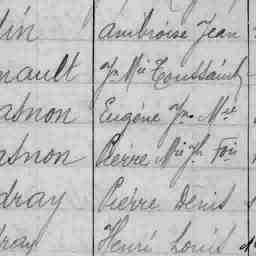 lin Ambroise Jean
nault Jn Mie Toussaint
asnon Eugène Jn Mie
asnon Pierre Mie Jh Fois
dray Pierre Denis
dray Henri Louis